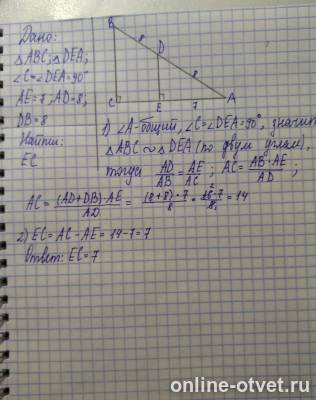 Дано:
△ABC; △DEA;
∠C=∠DEA=90°
AE=7, AD=8;
DB=8
Найти:
EC
B
8
D
8
C
E
7
A
1) ∠A-общий, ∠C=∠DEA=90°, значит
△ABC ∾ △DEA (по двум углам),
тогда AD/AB = AE/AC; AC = AB·AE/AD;
AC = (AD+DB)·AE/AD = (8+8)·7/8 = 16·7/8 = 14
2) EC = AC - AE = 14-7=7
Ответ: EC=7
online-otvet.ru